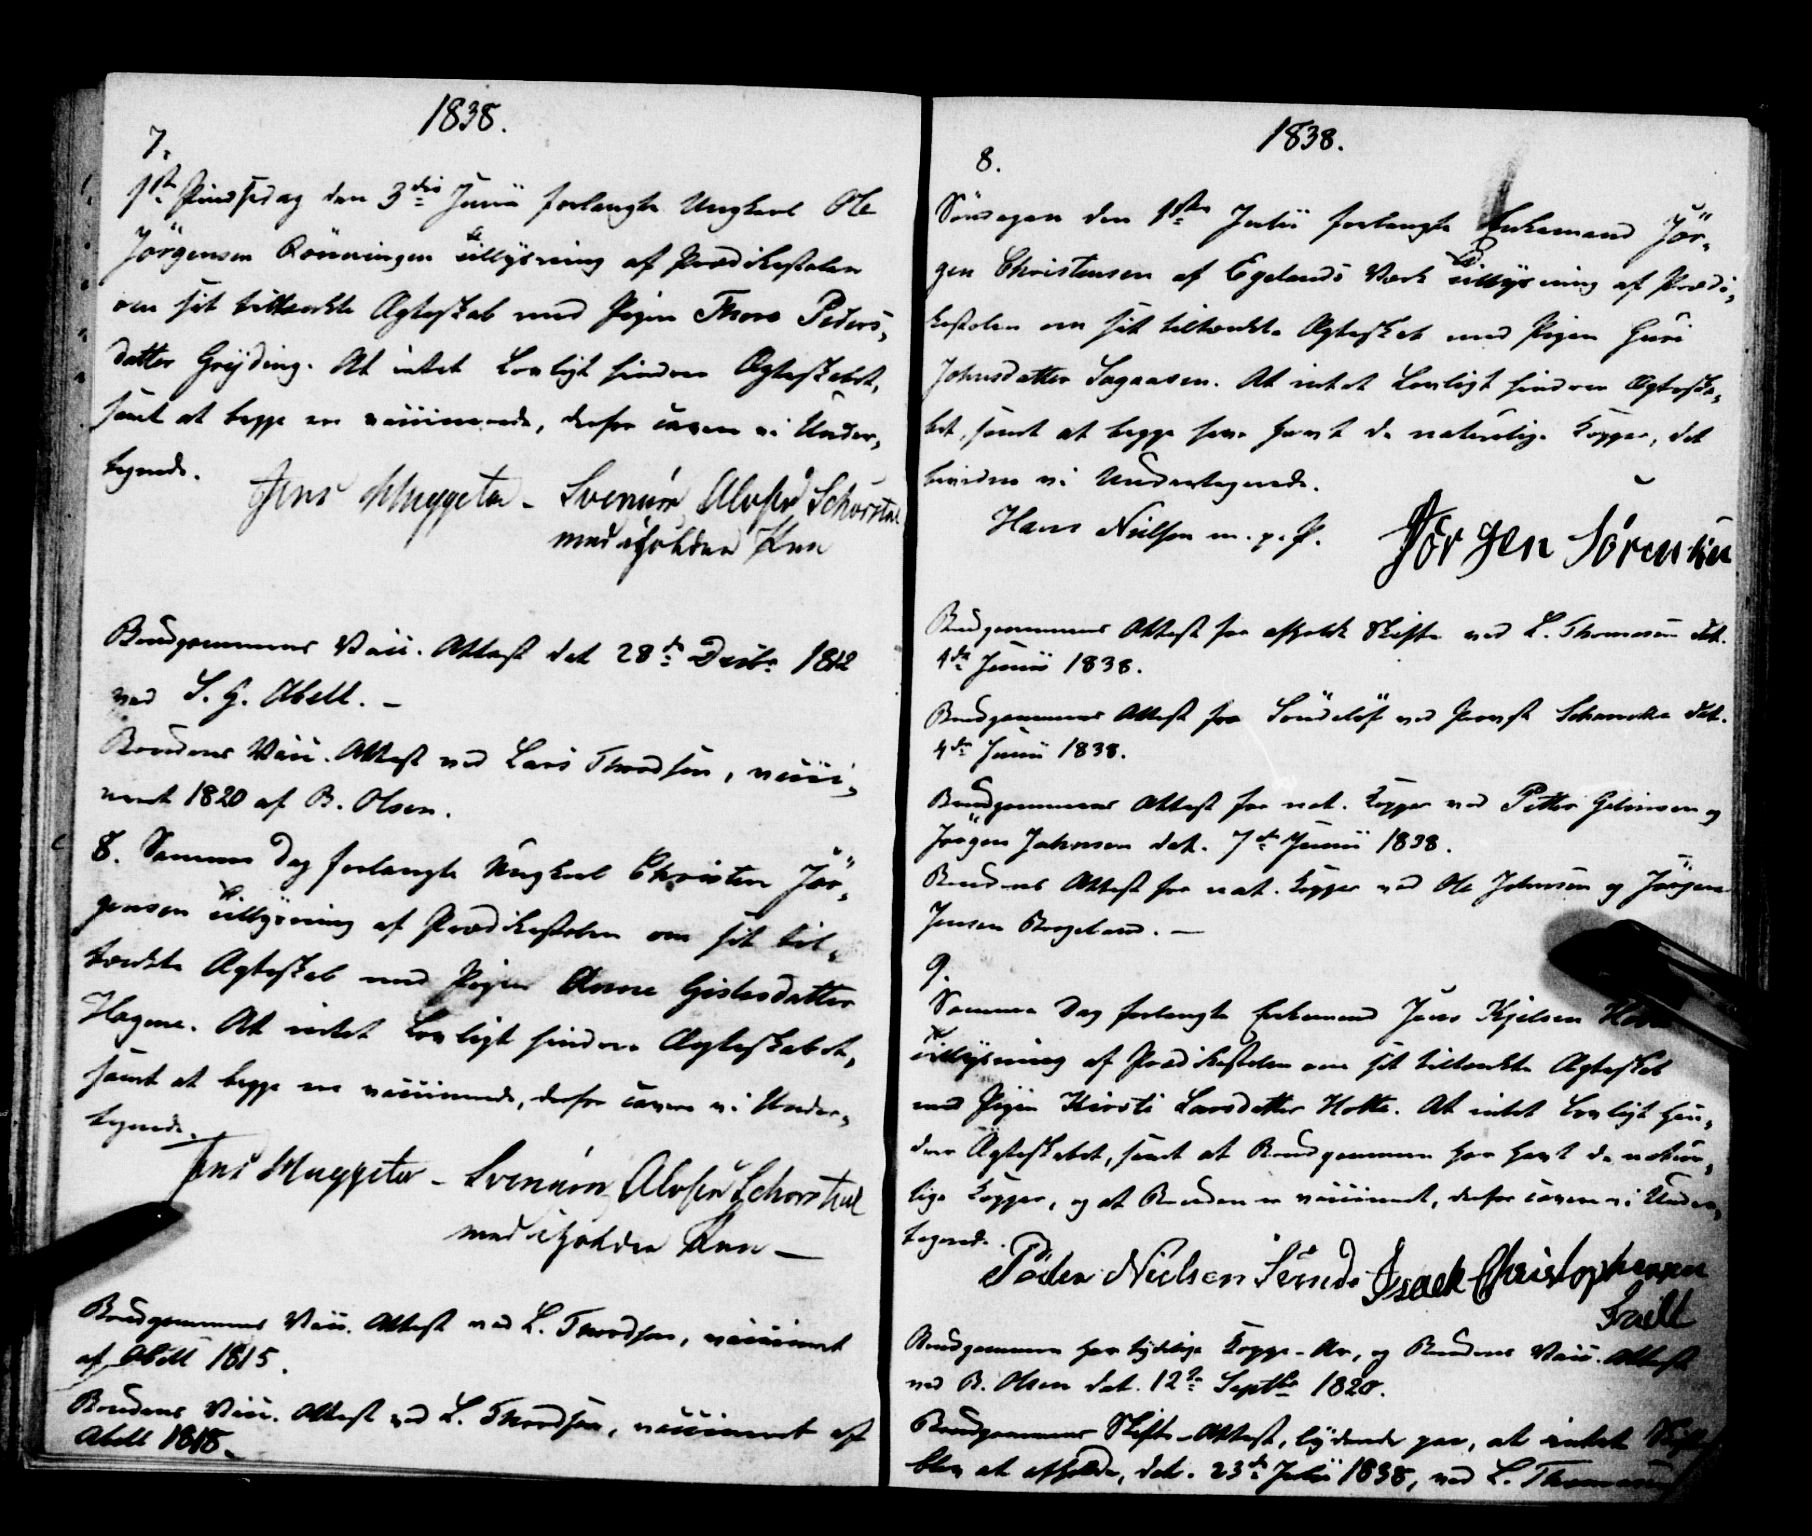 1838.
7.
1ste Pindsedag den 3die Junii forlangte Ungkarl Ole
Jörgensen Rönningen Tillysning af Prædikestolen
om sit tiltænkte Ægteskab med Pigen Thore Peders-
datter Gryding. At intet Lovligt hindrer Ægteskabet,
samt at begge ere vaccinerede, derfor cavere vi Under-
tegnede.
Jens Muggeta - Svennun Alofsen
med iholden Pen
Brudgommens Vacc. Attest dat. 28de Decbr 1812
ved S. G. Abell. -
Brudens Vacc. Attest ved Lars Thordsen, vacci-
neret 1820 af B. Olsen.
8. Samme Dag forlangte Ungkarl Christen Jör-
gensen Tillysning af Prædikestolen om sit til-
tænkte Ægteskab med Pigen Anne Gislesdatter
Hagene. At intet Lovligt hindrer Ægteskabet,
samt at begge ere vaccinerede, derfor cavere vi Under-
tegnede.
Jens Muggeta - Svennun Alofsen
med iholden Pen -
Brudgommens Vacc. Attest ved L. Thordsen, vaccineret
af Abell 1815.
Brudens Vacc. Attest ved L. Thordsen, vaccineret af
Abell 1818.
1838.
8.
Söndagen den 1ste Julii forlangte Enkemand Jör-
gen Christensen af Egelands Værk Tillysning af Prædi-
kestolen om sit tiltænkte Ægteskab med Pigen Guri
Johnsdatter Sagaasen. At intet Lovligt hindrer Ægteska-
bet, samt at begge have havt de naturlige Kopper, det
bevidne vi Undertegnede.
Hans Nielsen m. p. P. Jörgen Sörensen
Brudgommens Attest for afholdt Skifte ved L. Thomesen dat.
4de Junii 1838.
Brudgommens Attest fra Söndelöf ved Provst Schanche dat.
4de Junii 1838.
Brudgommens Attest for nat. Kopper ved Petter og
Jörgen Johnsen dat. 7de Junii 1838.
Brudens Attest for nat. Kopper ved Ole Johnsen og Jörgen
Jensen Bergeland. -
9.
Samme Dag forlangte Enkemand Jens Kjelsen
Tillysning af Prædikestolen om sit tiltænkte Ægteskab
med Pigen Kirsti Larsdatter Holte. At intet Lovligt hin-
drer Ægteskabet, samt at Brudgommen har havt de natur-
lige Kopper, og at Bruden er vaccineret, derfor cavere vi Under-
tegnede.
Peder Nielsen Isack Christophersen
Brudgommen har tydelige Kopper-Ar, og Brudens Vacc. Attest
ved B. Olsen dat. 12te Septbr 1820.
Brudgommens Skifte-Attest, lydende paa, at intet Skifte
blev at afholde, dat. 23de Julii 1838, ved L. Thomesen